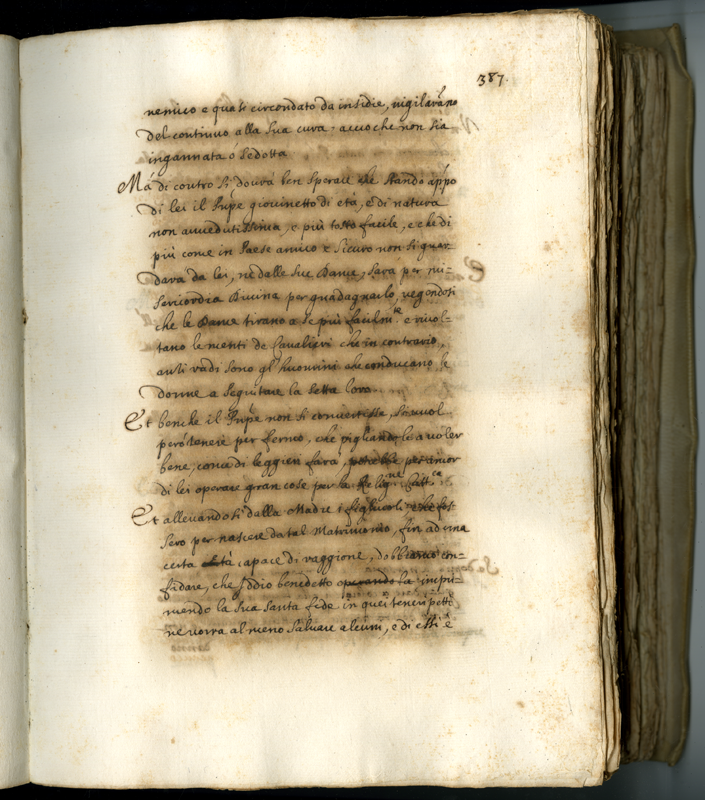 387.
nemico e quasi circondato da insidie, vigilarāno
del continuo alla sua cura, accioche non sia
ingannata ó sedotta
Má di contro si dourà ben sperare che stando appo
di lei il Pnpe giouinetto di età, e di natura
non auuedutissima, e più tosto facile, e che di
più come in Paese amico e sicuro non si guar
darà da lei, ne dalle sue Dame, sarà per mi=
sericordia Diuina per guadagnarlo, vegendosi
che le Dame tirano a se più facilm.te e riuol=
tano le menti de Cauallieri che in contrario,
anzi radi sono gl'huomini che conducano le
donne a seguitare la setta loro.
Et benche il Pnpe non si conuertisse, si uuol
però tenere per fermo, che pigliandole a uoler
bene, come di leggieri farà, potrebbe per amor
di lei operare gran cose per la Relig.ne Catt.ca
Et alleuandosi dalla Madre i figliuoli, che fos
sero per nascere da tal Matrimonio, fin ad una
certa età capace di raggione, dobbiamo con=
fidare, che Iddio benedetto operando la impri=
mendo la sua Santa fede in quei teneri petti
ne uorrà almeno saluare alcuni, e di essi è